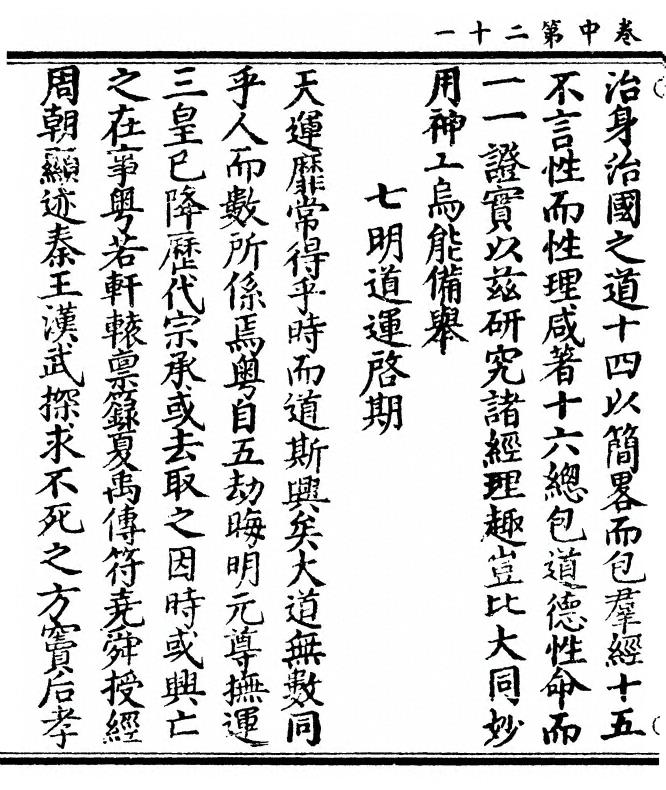 卷中第二十一
治身治國之道十四以簡畧而包羣經十五
不言性而性理咸著十六總包道德性命而
一一證實以茲研究諸經理趣豈比大同妙
用神工烏能備舉
七明道運啓期
天運靡常得乎時而道斯興矣大道無數同
乎人而數所係焉粤自五劫晦明元尊撫運
三皇已降歷代宗承或去取之因時或興亡
之在事粤若軒轅禀籙夏禹傳符堯舜授經
周朝顯迹秦王漢武探求不死之方竇后孝